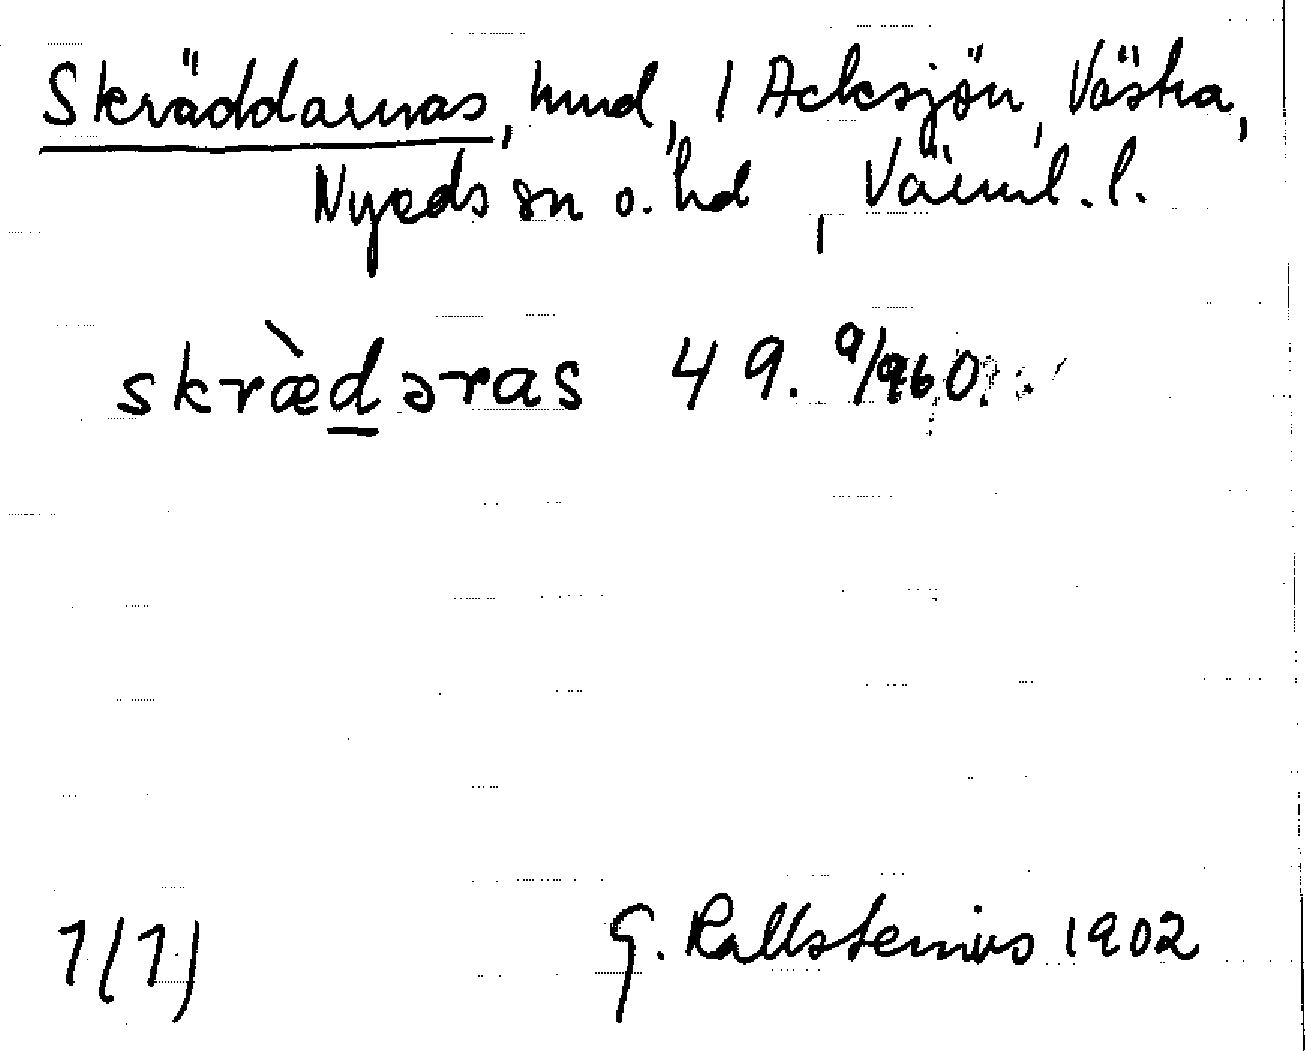 Skräddarnas, hmd, 1 Acksjön, Västra,
Nyeds sn o. hd, Värml. l.
skræ̀d̲əras 49. 9/960
1(1) G. Kallstenius 1902